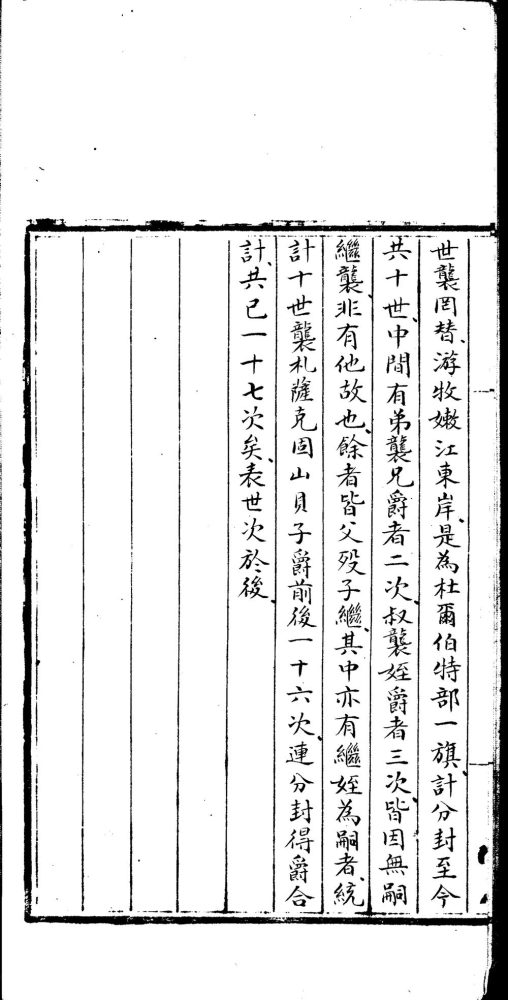 世襲罔替、游牧嫩江東岸、是為杜爾伯特部一旗、計分封至今
共十世、中間有弟襲兄爵者二次、叔襲姪爵者三次、皆因無嗣
繼襲、非有他故也、餘者皆父歿子繼、其中亦有繼姪為嗣者、統
計十世襲札薩克固山貝子爵前後一十六次、連分封得爵合
計、共已一十七次矣、表世次於後、